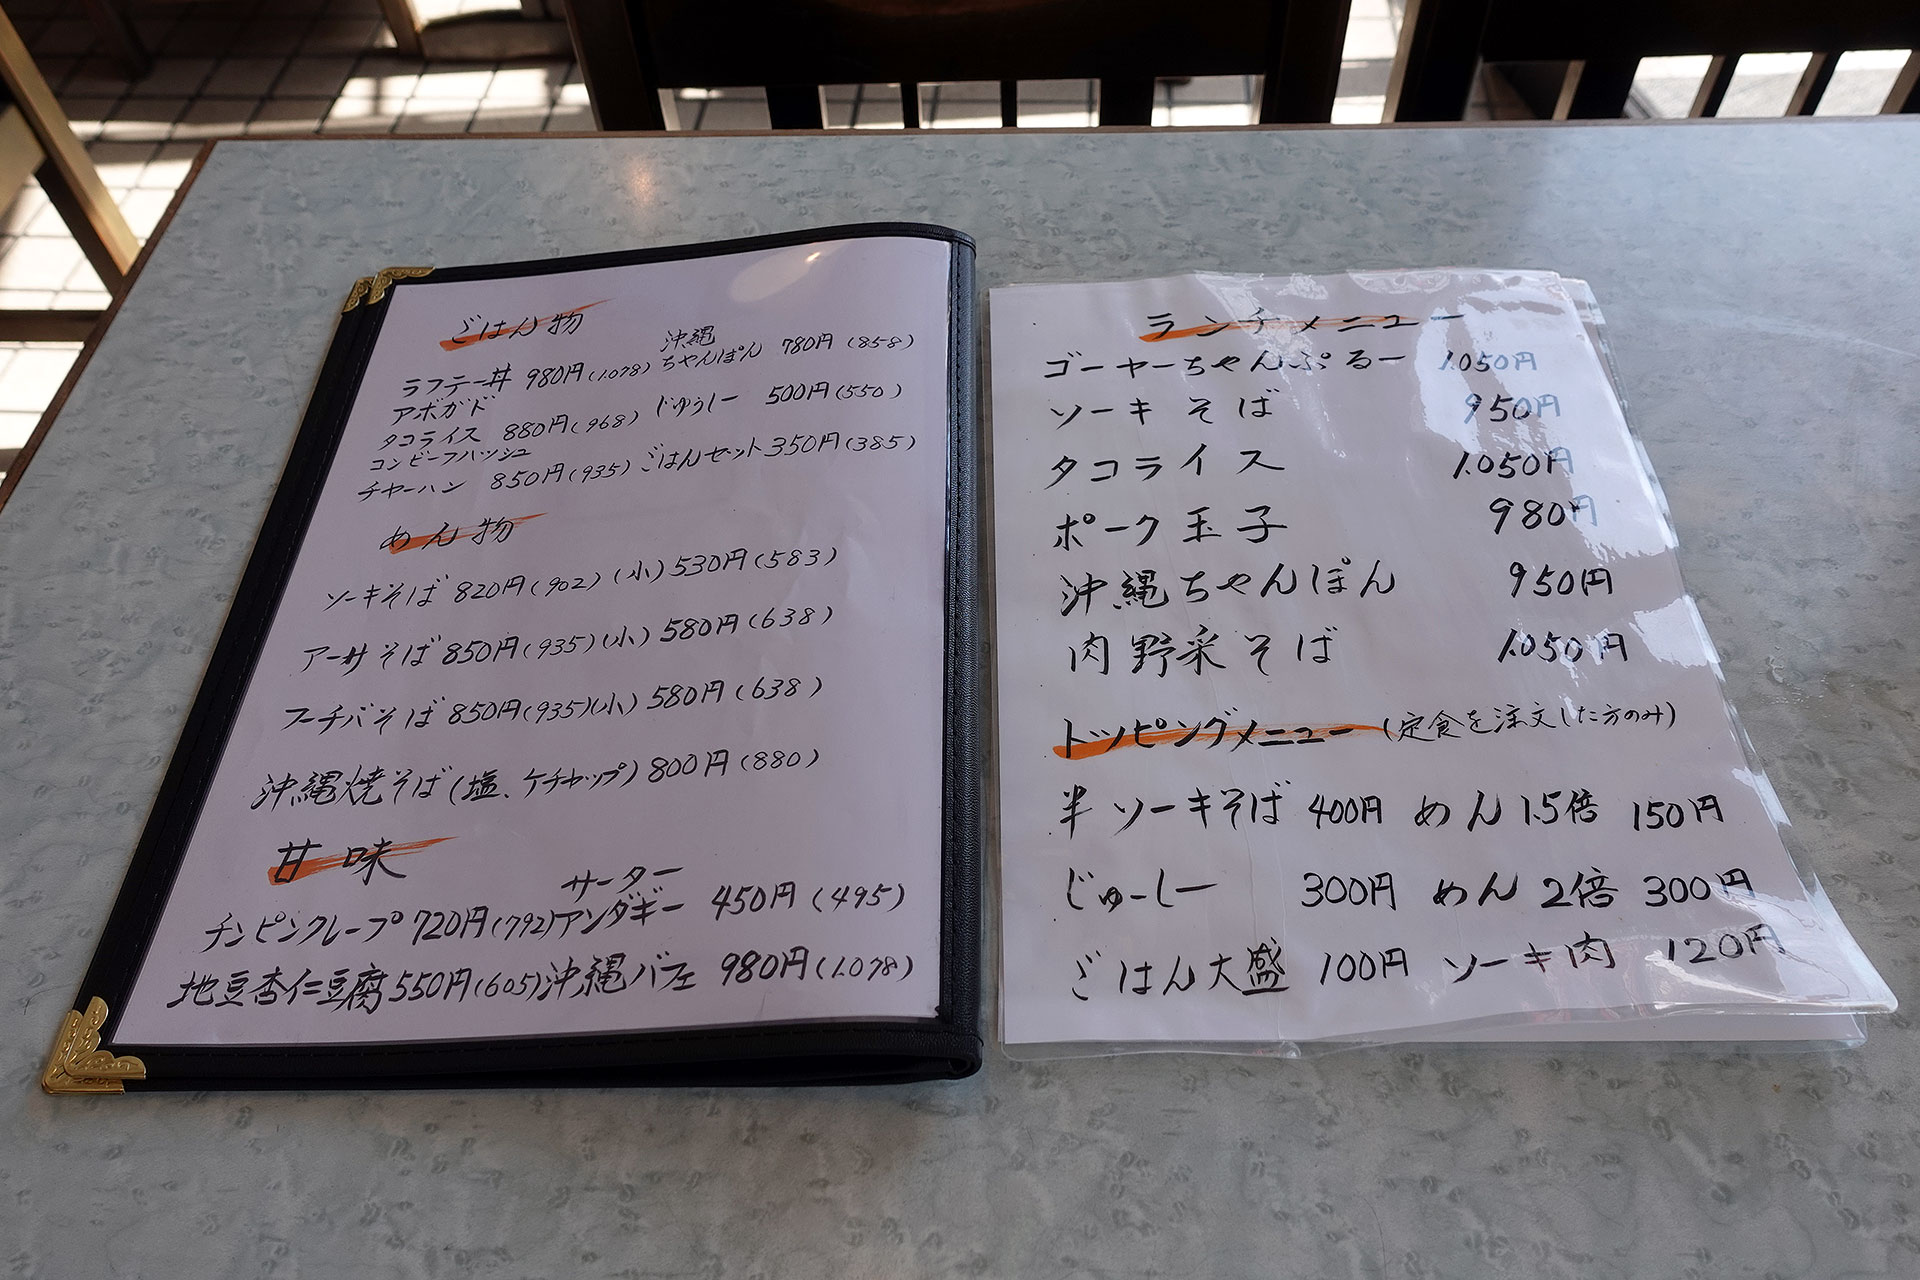 ごはん物
ラフテー丼 980円(1.078) 沖縄ちゃんぽん 780円(858)
アボガドタコライス 880円(968) じゅうしー 500円(550)
コンビーフハッシュチャーハン 850円(935) ごはんセット 350円(385)
めん物
ソーキそば 820円(902) (小) 530円(583)
アーサそば 850円(935)(小) 580円(638)
フーチバそば 850円(935)(小) 580円(638)
沖縄焼そば(塩、ケチャップ) 800円(880)
甘味
チンピンクレープ 720円(792) サーターアンダギー 450円(495)
地豆杏仁豆腐 550円(605) 沖縄パフェ 980円(1.078)
ランチメニュー
ゴーヤーちゃんぷるー 1.050円
ソーキそば 950円
タコライス 1.050円
ポーク玉子 980円
沖縄ちゃんぽん 950円
肉野采そば 1.050円
トッピングメニュー (定食を注文した方のみ)
半ソーキそば 400円 めん1.5倍 150円
じゅーしー 300円 めん2倍 300円
ごはん大盛 100円 ソーキ肉 120円